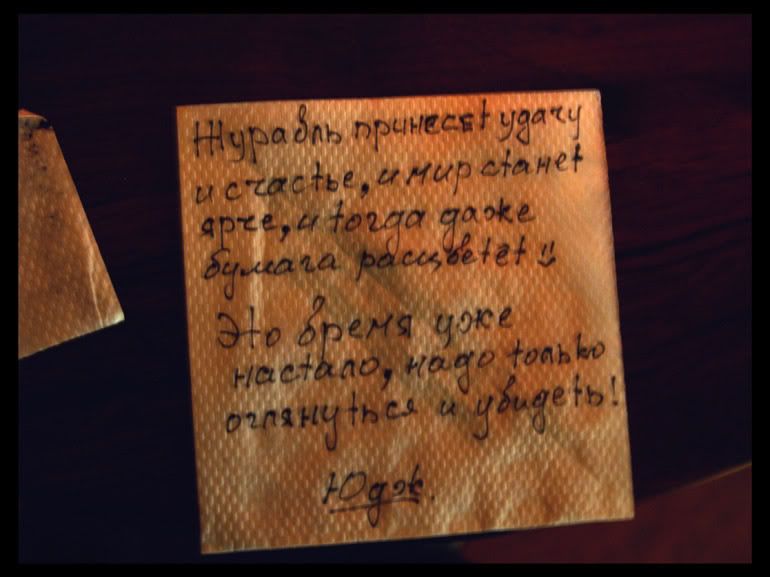 Журавль принесёт удачу
и счастье, и мир станет
ярче, и тогда даже
бумага расцветёт :)
Это время уже
настало, надо только
оглянуться и увидеть!
Юдж.